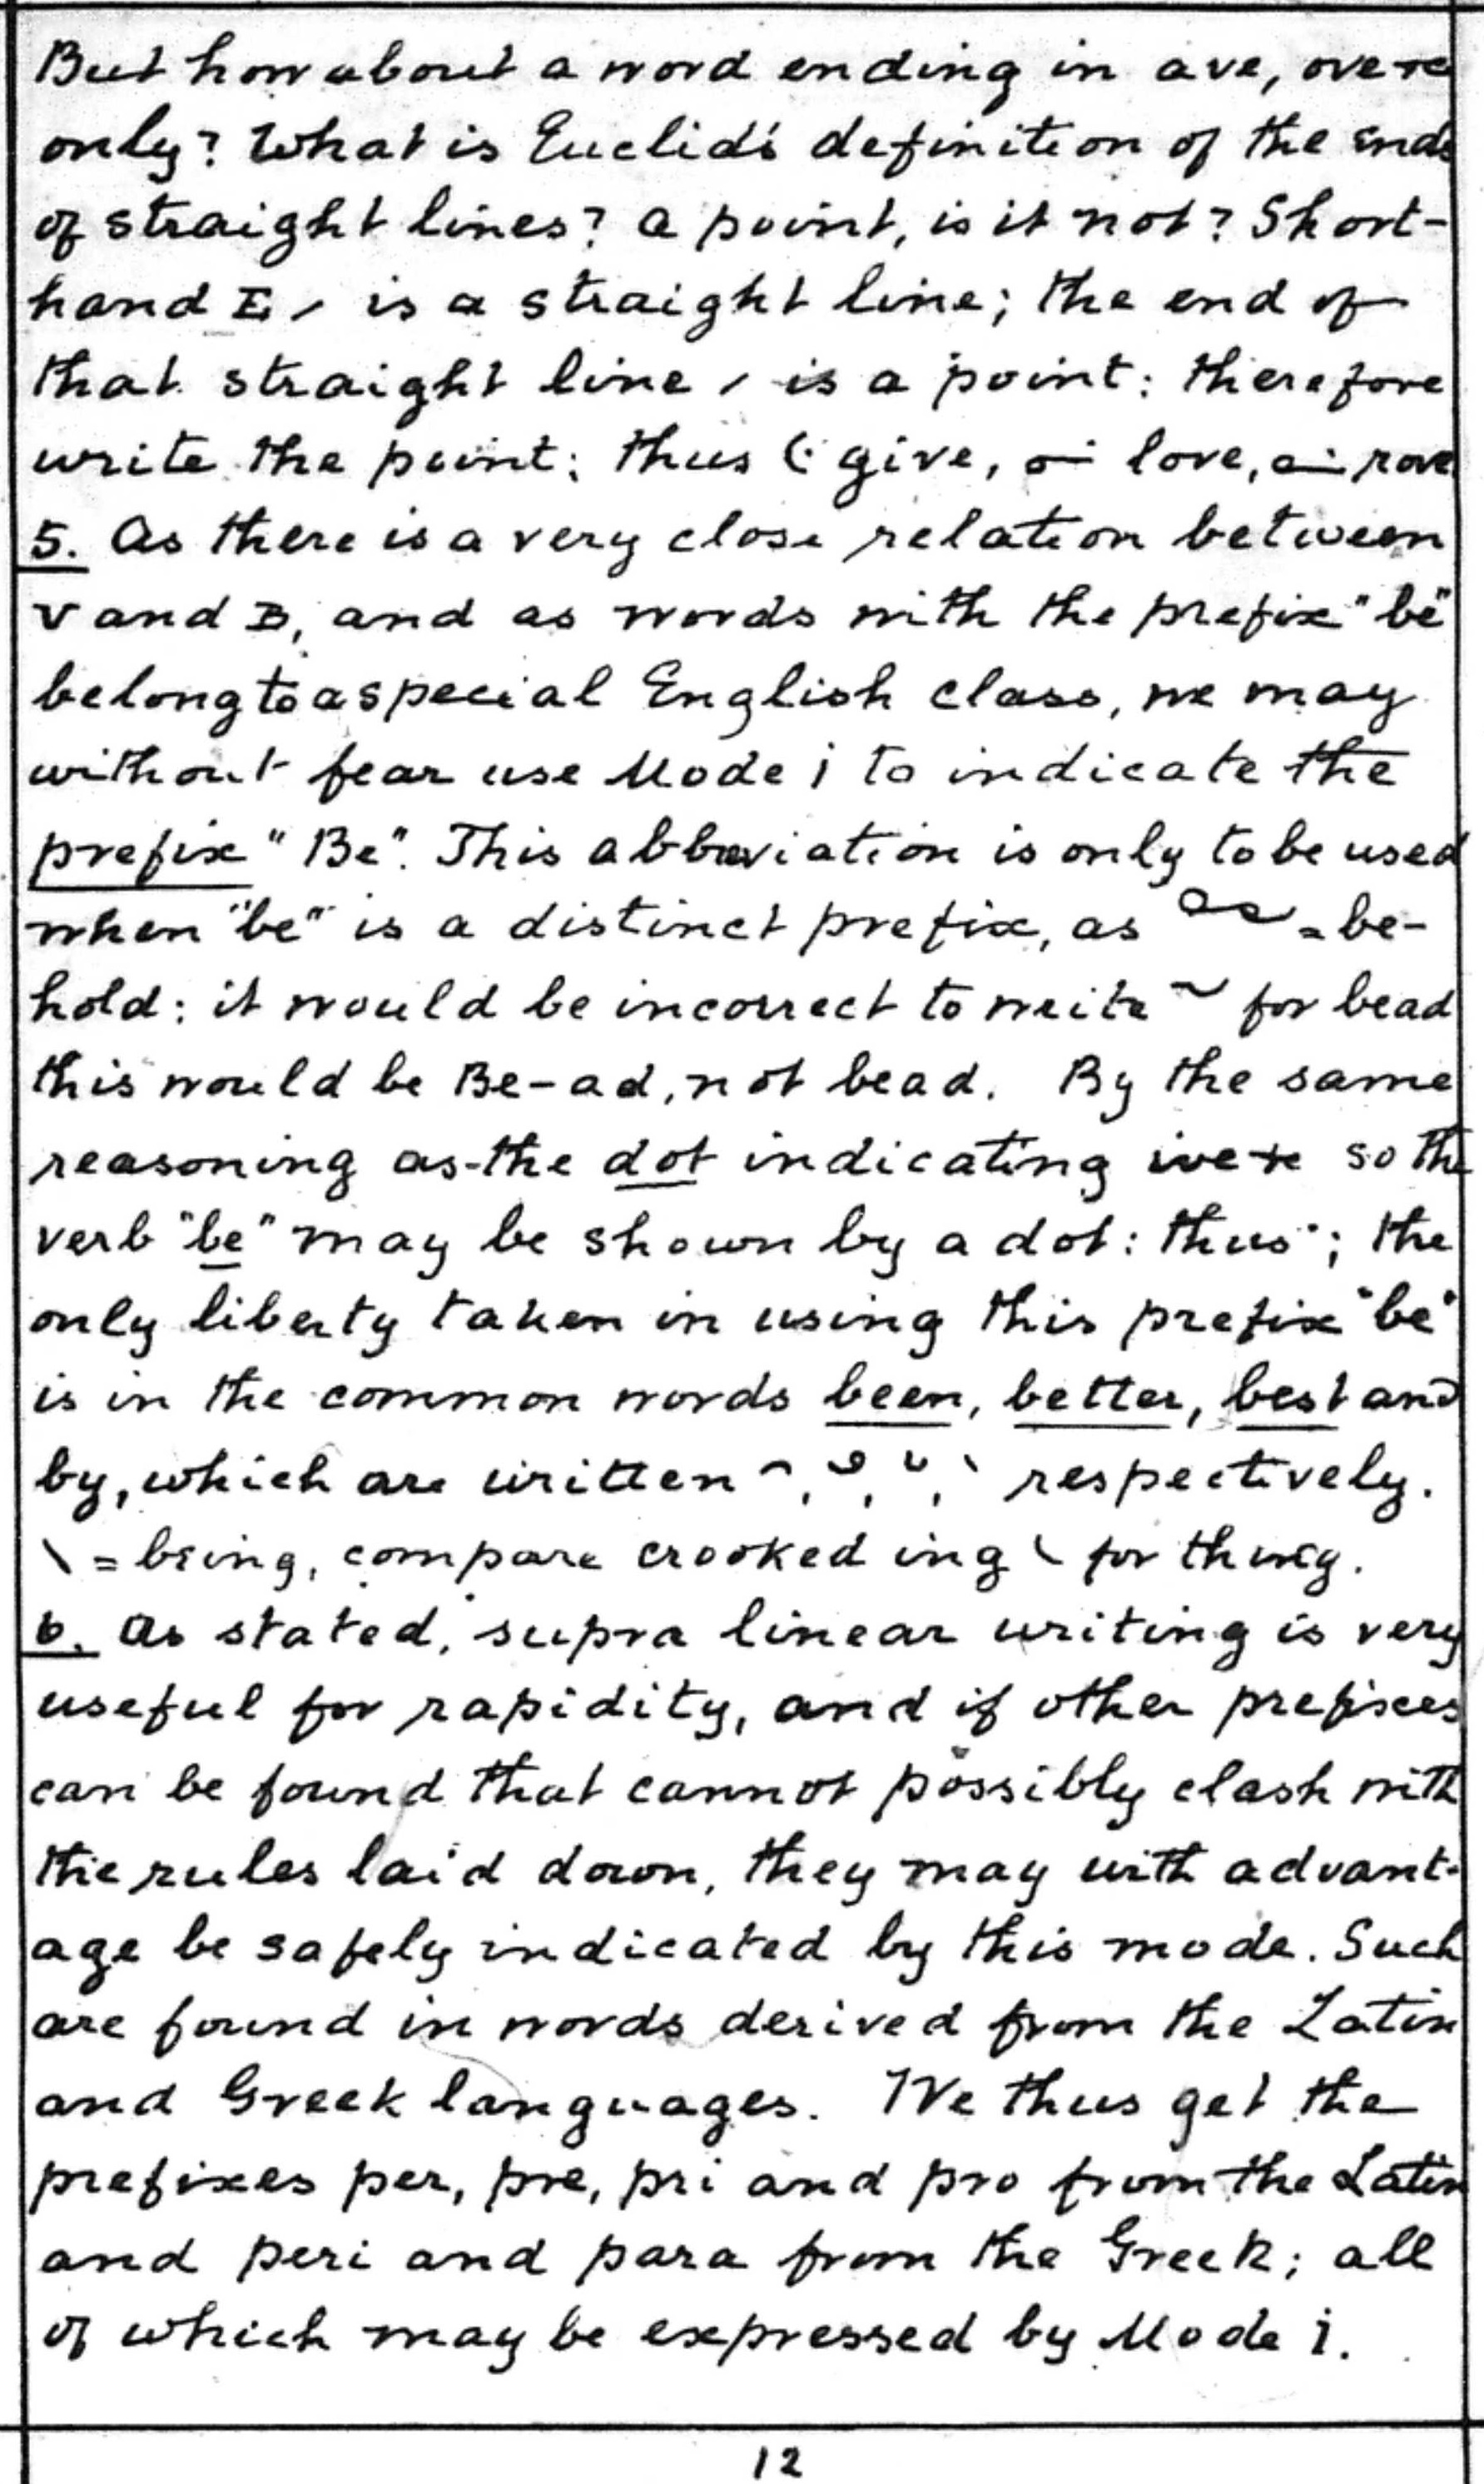 But how about a word ending in ave, ove &c
only? What is Euclid's definition of the ends
of straight lines? A point, is it not? Short-
hand E, is a straight line; the end of
that straight line is a point: therefore
write the point: thus give, love, rove
5. As there is a very close relation between
V and B, and as words with the prefix "be"
belong to a special English class, we may
without fear use Mode i to indicate the
prefix "Be". This abbreviation is only to be used
when "be" is a distinct prefix, as = be-
hold: it would be incorrect to write for bead
this would be Be-ad, not bead. By the same
reasoning as the dot indicating ive &c so the
verb "be" may be shown by a dot: thus ·; the
only liberty taken in using this prefix "be"
is in the common words been, better, best and
by, which are written , , , respectively.
\ = being, compare crooked ing for thing.
6. As stated, supra linear writing is very
useful for rapidity, and if other prefixes
can be found that cannot possibly clash with
the rules laid down, they may with advant-
age be safely indicated by this mode. Such
are found in words derived from the Latin
and Greek languages. We thus get the
prefixes per, pre, pri and pro from the Latin
and peri and para from the Greek; all
of which may be expressed by Mode i.
12